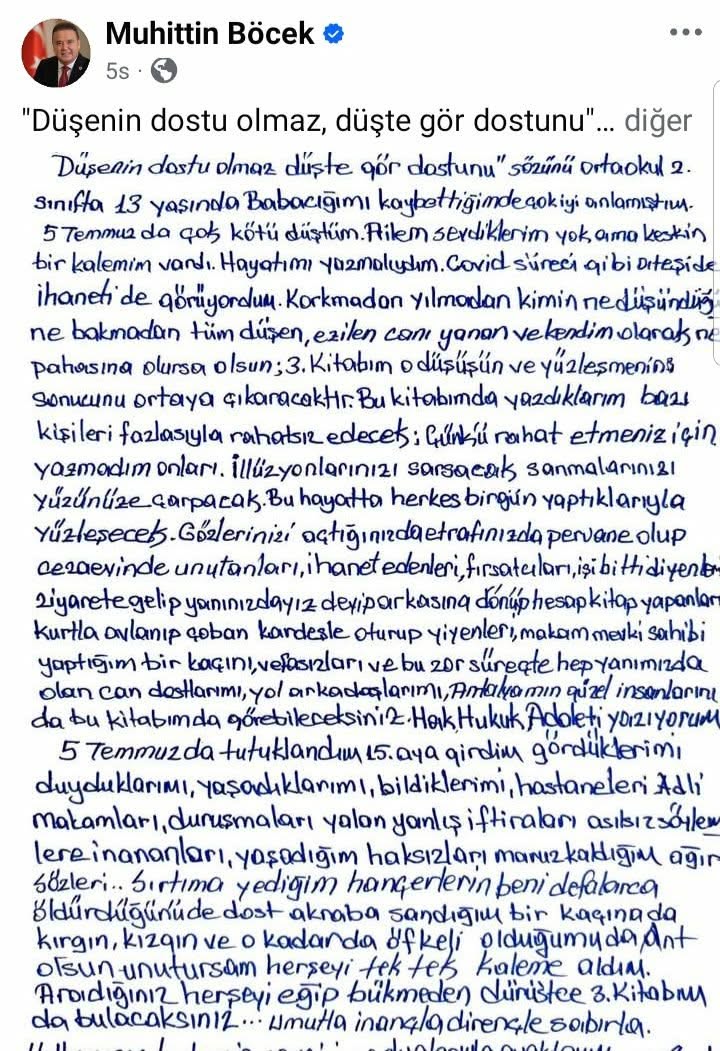 Muhittin Böcek
5s
"Düşenin dostu olmaz, düşte gör dostunu"... diğer
Düşenin dostu olmaz düşte gör dostunu" sözünü ortaokul 2.
sınıfta 13 yaşında Babacığımı kaybettiğimde çok iyi anlamıştım.
5 Temmuz da çok kötü düştüm. Ailem sevdiklerim yok ama keskin
bir kalemim vardı. Hayatımı yazmalıydım. Covid süreci gibi öteside
ihaneti de görüyordum. Korkmadan yılmadan kimin ne düşündüğ
ne bakmadan tüm düşen, ezilen canı yanan ve kendim olarak ne
pahasına olursa olsun; 3. Kitabım o düşüşün ve yüzleşmenins
sonucunu ortaya çıkaracaktır. Bu kitabımda yazdıklarım bazı
kişileri fazlasıyla rahatsız edecek; Çünkü rahat etmeniz için
yazmadım onları. İllüzyonlarınızı sarsacak sanmalarınızı
yüzünüze çarpacak. Bu hayatta herkes birgün yaptıklarıyla
yüzleşecek. Gözlerinizi açtığınızda etrafınızda pervane olup
cezaevinde unutanları, ihanet edenleri, fırsatcıları, işi bitti diyenle
ziyarete gelip yanınızdayız deyip arkasına dönüp hesap kitap yapanları
kurtla avlanıp çoban kardeşle oturup yiyenleri, makam mevki sahibi
yaptığım bir kaçını, vefasızları ve bu zor süreçte hep yanımızda
olan can dostlarımı, yol arkadaşlarımı, Antalyamın güzel insanlarını
da bu kitabımda görebileceksiniz. Hak, Hukuk, Adaleti yazıyorum
5 Temmuz da tutuklandım 15. aya girdim gördüklerimi
duyduklarımı, yaşadıklarımı, bildiklerimi, hastaneleri Adli
makamları, duruşmaları yalan yanlış iftiraları asılsız söylem
lere inananları, yaşadığım haksızları maruz kaldığım ağır
sözleri.. Sırtıma yediğim hançerlerin beni defalarca
öldürdüğünüde dost akraba sandığım bir kaçına da
kırgın, kızgın ve o kadarda öfkeli olduğumu da Ant
olsun unutursam herşeyi tek tek kaleme aldım.
Aradığınız herşeyi eğip bükmeden dürüstce 3. Kitabım
da bulacaksınız... Umutla inançla dirençle sabırla.